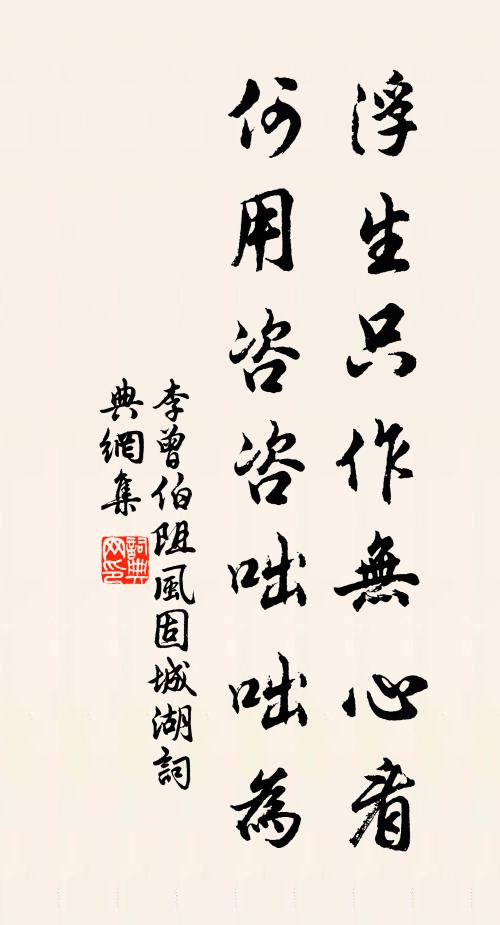 浮生只作無心看
何用咨咨咄咄為
李曾伯阻風固城湖詞
典網集
詞典
网印